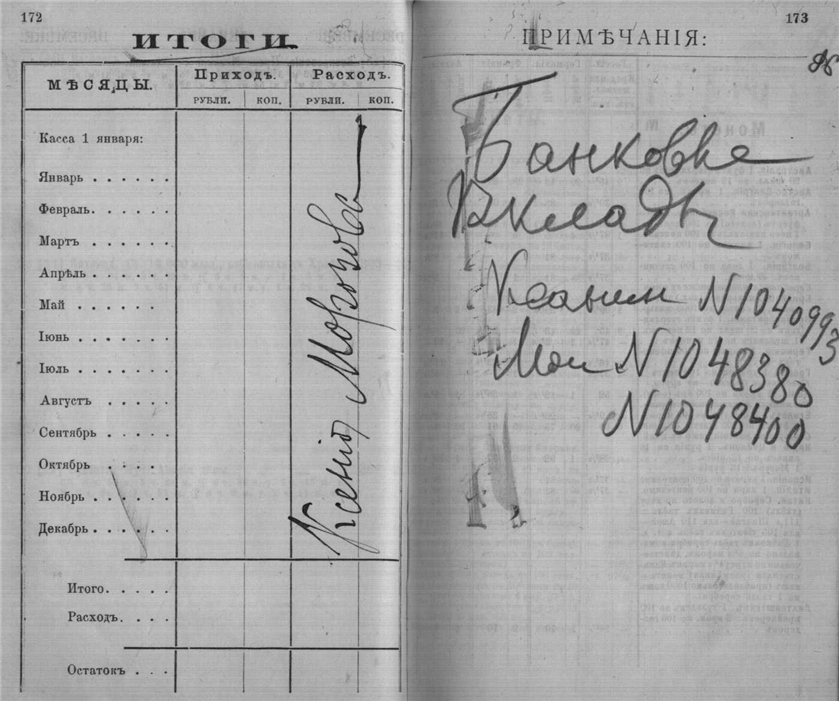 172
ИТОГИ.
МѢСЯЦЫ. Приходъ. Расходъ.
РУБЛИ. КОП. РУБЛИ. КОП.
Касса 1 января:
Январь . . . . . .
Февраль. . . . . .
Мартъ . . . . . .
Апрѣль . . . . . .
Май . . . . . .
Іюнь . . . . . .
Іюль . . . . . .
Августъ . . . . .
Сентябрь . . . . .
Октябрь . . . . .
Ноябрь . . . . . .
Декабрь . . . . . .
Итого. . . . .
Расходъ. . . . .
Остатокъ . . .
Морозова
173
ПРИМѢЧАНІЯ:
Банковые
Вклады
N 1040993
Мои N 1048380
N 1048400